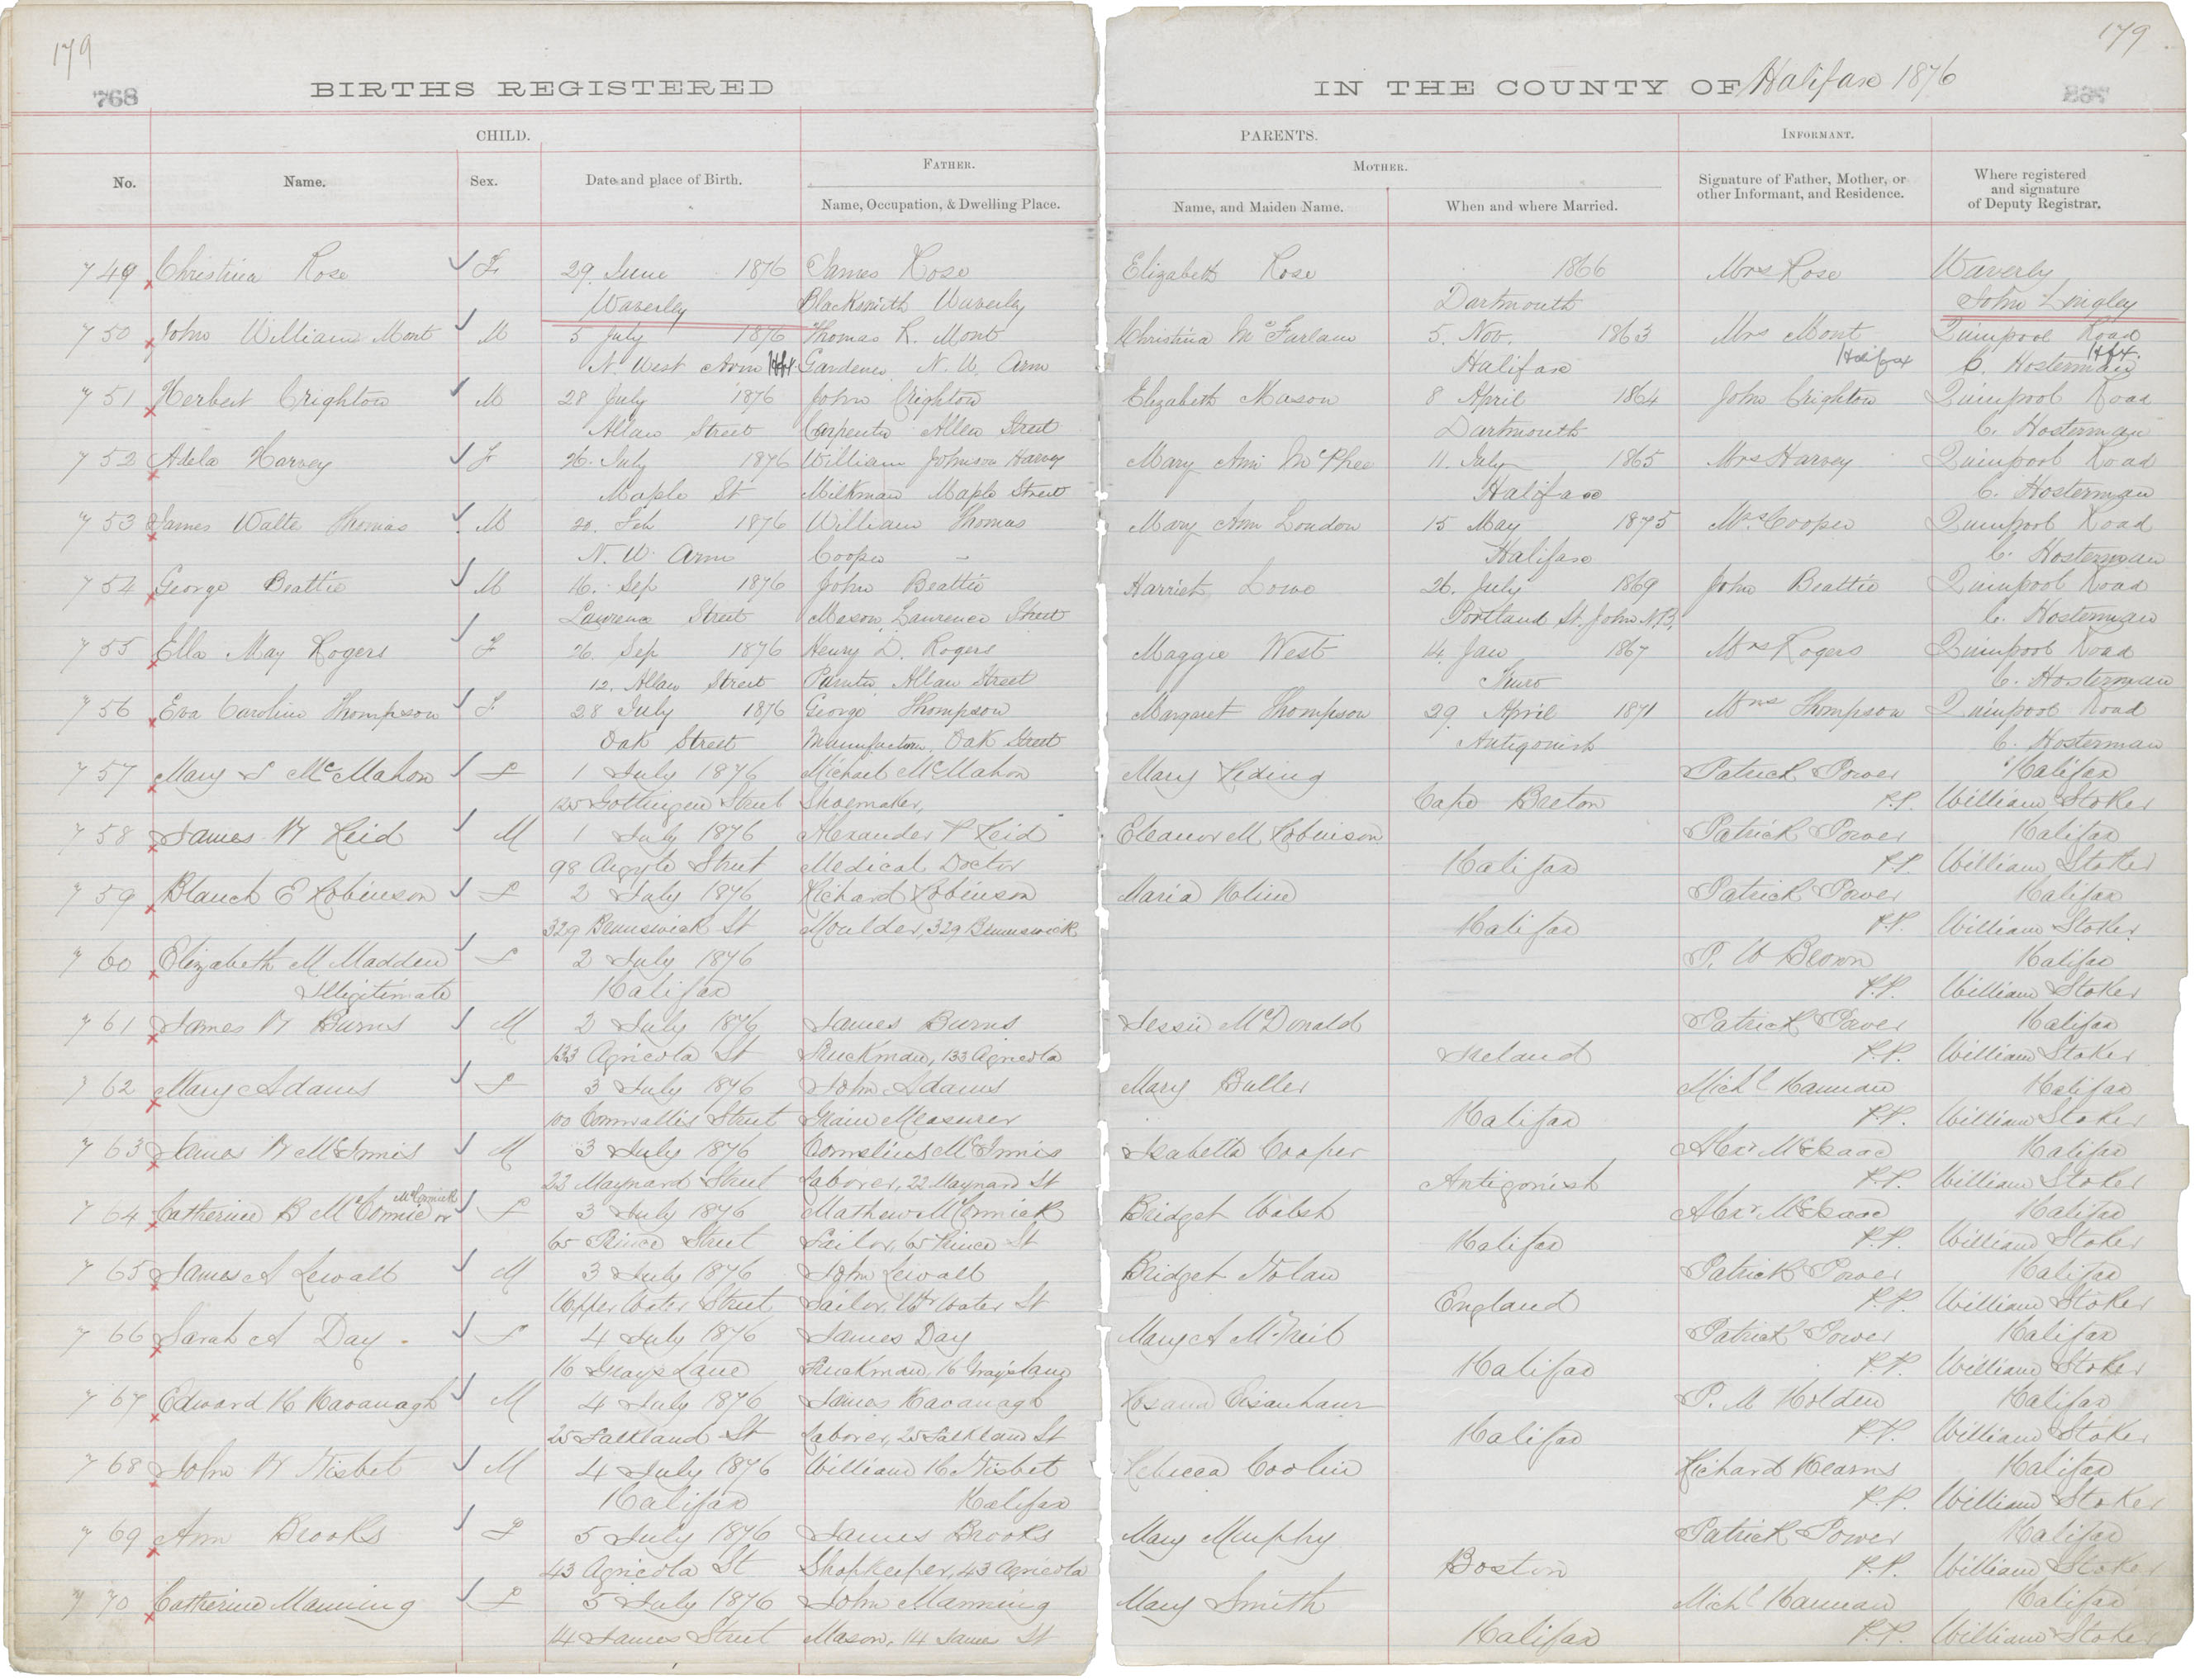 179
179
768
BIRTHS REGISTERED
IN THE COUNTY OF Halifax 1876
CHILD.
PARENTS.
INFORMANT.
No.
Name.
Sex.
Date and place of Birth.
FATHER.
Name, Occupation, & Dwelling Place.
MOTHER.
Name, and Maiden Name.
When and where Married.
Signature of Father, Mother, or other Informant, and Residence.
Where registered and signature of Deputy Registrar.
749 Christina Rose F 29 June 1876 James Rose Elizabeth Rose 1866 Mrs Rose Waverly
Waverley Blacksmith Waverley Dartmouth John Lingley
750 John William Mont M 5 July 1876 Thomas R. Mont Christina McFarlane 5. Nov. 1863 Mrs Mont Quinpool Road
N. West Arm Hfx Gardener N. W. Arm Halifax Halifax C. Hosterman Hfx.
751 Herbert Crighton M 28 July 1876 John Crighton Elizabeth Mason 8 April 1864 John Crighton Quinpool Road
Allan Street Carpenter Allen Street Dartmouth C. Hosterman
752 Adela Harvey F 26. July 1876 William Johnson Harvey Mary Ann McPhee 11. July 1865 Mrs Harvey Quinpool Road
Maple St Milkman Maple Street Halifax C. Hosterman
753 James Walte Thomas M 20. Feb 1876 William Thomas Mary Ann London 15 May 1875 Mrs Cooper Quinpool Road
N. W. Arm Cooper Halifax C. Hosterman
754 George Beattie M 16. Sep 1876 John Beattie Harriet Lowe 26. July 1869 John Beattie Quinpool Road
Lawrence Street Mason, Laurence Street Portland St. John N.B. C. Hosterman
755 Ella May Rogers F 26. Sep 1876 Henry D. Rogers Maggie West 14. Jan 1867 Mrs Rogers Quinpool Road
12. Allan Street Painter Allan Street Truro C. Hosterman
756 Eva Caroline Thompson F 28 July 1876 George Thompson Margaret Thompson 29. April 1871 Mrs Thompson Quinpool Road
Oak Street Manufacturer. Oak Street Antigonish C. Hosterman
757 Mary S McMahon F 1 July 1876 Michael McMahon Mary Reding Patrick Power Halifax
125 Gottingen Street Shoemaker, Cape Breton P.P. William Stoker
758 James W Reid M 1 July 1876 Alexander P Reid Eleanor M Robinson Patrick Power Halifax
98 Argyle Street Medical Doctor Halifax P.P. William Stoker
759 Blanch E Robinson F 2 July 1876 Richard Robinson Maria Kline Patrick Power Halifax
329 Brunswick St Moulder, 329 Brunswick Halifax P.P. William Stoker
760 Elizabeth M Madden F 2 July 1876 P. W Brown Halifax
Illegitimate Halifax P.P. William Stoker
761 James W Burns M 2 July 1876 James Burns Jessie McDonald Patrick Power Halifax
133 Agricola St Truckman, 133 Agricola Ireland P.P. William Stoker
762 Mary Adams F 3 July 1876 John Adams Mary Butler Michl Hannan Halifax
100 Cornwallis Street Grain Measurer Halifax P.P. William Stoker
763 James W McInnis M 3 July 1876 Cornelius McInnis Isabella Cooper Alexr McIsaac Halifax
22 Maynard Street Laborer, 22 Maynard St Antigonish P.P. William Stoker
764 Catherine B McComic or McCormick F 3 July 1876 Mathew McCormick Bridget Walsh Alexr McIsaac Halifax
65 Prince Street Sailor, 65 Prince St Halifax P.P. William Stoker
765 James A Lewalt M 3 July 1876 John Lewalt Bridget Nolan Patrick Power Halifax
Upper Water Street Sailor, Upr Water St England P.P. William Stoker
766 Sarah A Day F 4 July 1876 James Day Mary A McNeil Patrick Power Halifax
16 Grays Lane Truckman, 16 Grays Lane Halifax P.P. William Stoker
767 Edward H Kavanagh M 4 July 1876 James Kavanagh Rosana Eisenhaur P. M Holden Halifax
25 Falkland St Laborer, 25 Falkland St Halifax P.P. William Stoker
768 John W Nisbet M 4 July 1876 William H Nisbet Rebecca Coolin Richard Kearns Halifax
Halifax Halifax P.P. William Stoker
769 Ann Brooks F 5 July 1876 James Brooks Mary Murphy Patrick Power Halifax
43 Agricola St Shopkeeper, 43 Agricola Boston P.P. William Stoker
770 Catherine Manning F 5 July 1876 John Manning Mary Smith Michl Hannan Halifax
14 James Street Mason, 14 James St Halifax P.P. William Stoker